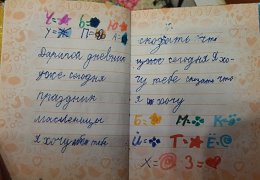 У= Б= Ю=
У= П= А=
Дарагой дневник
уже сегодня
праздник
масленицы
Я хочу тебе
сказать что
уже сегодня Я хо-
чу тебе сказать что
я хочу
Б= М= К=
Й= Т= Ё=
Х= З=